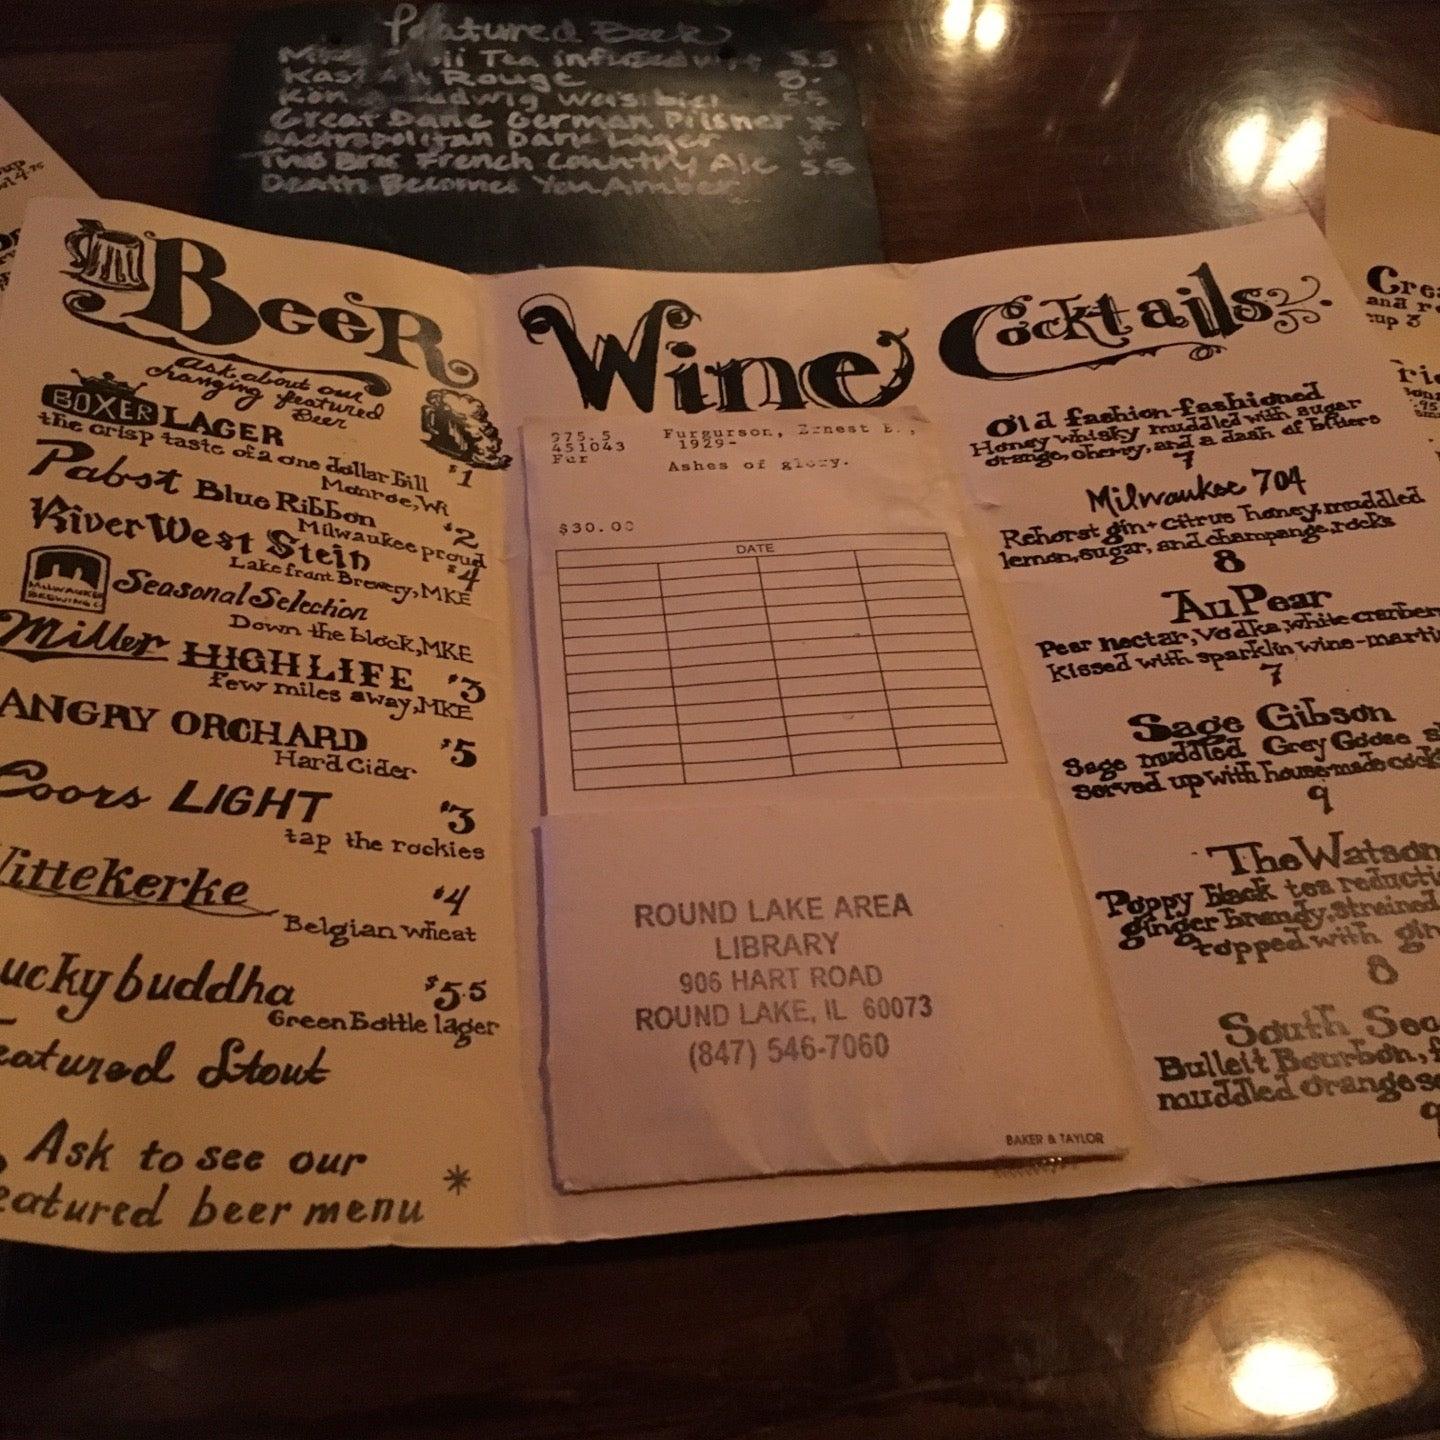 Featured Beer
Tea infused 5.5
Rouge 8-
5.5
Great Dane German Pilsner *
Metropolitan Dark Lager *
Two Bros French Country Ale 5.5
Death Becomes You Amber
Beer
ask about our
changing featured
Beer
BOXER LAGER
the crisp taste of a one dollar bill $1
Monroe, Wi
Pabst Blue Ribbon $2
Milwaukee proud
RiverWest Stein $4
Lakefront Brewery, MKE
MILWAUKEE
BREWING C
Seasonal Selection
Down the block, MKE
Miller HIGH LIFE $3
few miles away, MKE
ANGRY ORCHARD $5
Hard Cider
Coors LIGHT $3
tap the rockies
ittekerke $4
Belgian wheat
ucky buddha $5.5
Green Bottle lager
eatured Stout
Ask to see our
eatured beer menu *
Wine
975.5
451043
Fur
Furgurson, Ernest B.,
1929-
Ashes of glory.
$30.00
DATE
ROUND LAKE AREA
LIBRARY
906 HART ROAD
ROUND LAKE, IL 60073
(847) 546-7060
BAKER & TAYLOR
Cocktails
Old fashion-fashioned
Honey whisky muddled with sugar
orange, cherry, and a dash of bitters
7
Milwaukee 704
Rehorst gin + citrus honey, muddled
lemon, sugar, and champange, rocks
8
Au Pear
Pear nectar, Vodka, white cranber
kissed with sparklin wine-marti
7
Sage Gibson
Sage muddled Grey Goose s
served up with house-made cock
9
The Watson
Poppy black tea reducti
ginger brandy, strained
topped with gin
8
South Sec
Bulleit Bourbon, f
muddled orange s
9
Cre
and r
cup 3